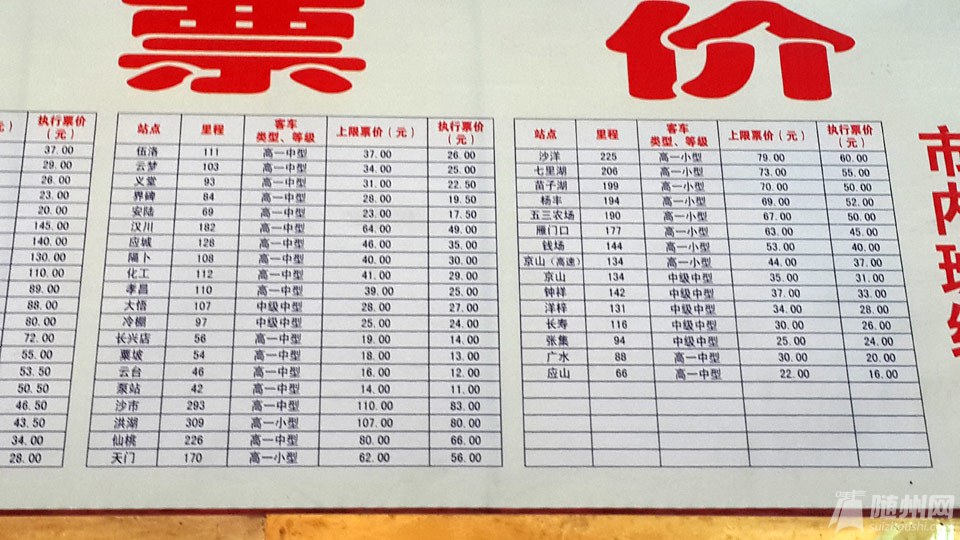 票 价
元）
执行票价
（元）
37.00
29.00
26.00
23.00
20.00
145.00
140.00
130.00
110.00
89.00
88.00
80.00
72.00
55.00
53.50
50.50
46.50
43.50
34.00
28.00
站点 里程 客车类型、等级 上限票价（元） 执行票价（元）
伍洛 111 高一中型 37.00 26.00
云梦 103 高一中型 34.00 25.00
义堂 93 高一中型 31.00 22.50
界碑 84 高一中型 28.00 19.50
安陆 69 高一中型 23.00 17.50
汉川 182 高一中型 64.00 49.00
应城 128 高一中型 46.00 35.00
隔卜 108 高一中型 40.00 30.00
化工 112 高一中型 41.00 29.00
孝昌 110 高一中型 39.00 25.00
大悟 107 中级中型 28.00 27.00
冷棚 97 中级中型 25.00 24.00
长兴店 56 高一中型 19.00 14.00
粟坡 54 高一中型 18.00 13.00
云台 46 高一中型 16.00 12.00
泵站 42 高一中型 14.00 11.00
沙市 293 高一中型 110.00 83.00
洪湖 309 高一小型 107.00 80.00
仙桃 226 高一中型 80.00 66.00
天门 170 高一小型 62.00 56.00
站点 里程 客车类型、等级 上限票价（元） 执行票价（元）
沙洋 225 高一小型 79.00 60.00
七里湖 206 高一小型 73.00 55.00
苗子湖 199 高一小型 70.00 50.00
杨丰 194 高一小型 69.00 52.00
五三农场 190 高一小型 67.00 50.00
雁门口 177 高一小型 63.00 45.00
钱场 144 高一小型 53.00 40.00
京山（高速） 134 高一小型 44.00 37.00
京山 134 中级中型 35.00 31.00
钟祥 142 中级中型 37.00 33.00
洋梓 131 中级中型 34.00 28.00
长寿 116 中级中型 30.00 26.00
张集 94 中级中型 25.00 24.00
广水 88 高一中型 30.00 20.00
应山 66 高一中型 22.00 16.00
市内班线
随州网